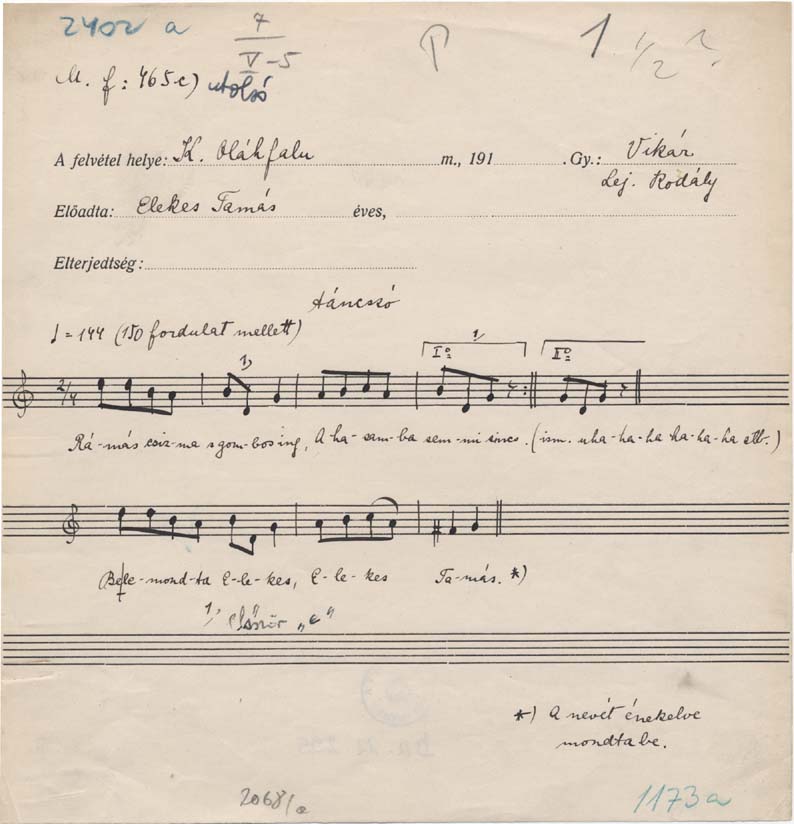 2402 a
7
V-5
1 1/2
M. f: 465c) utolsó
A felvétel helye: K. Oláhfalu m., 191 . Gy.: Vikár
Lej. Kodály
Előadta: Elekes Tamás éves,
Elterjedtség:
táncszó
♩ = 144 (150 fordulat mellett)
1) Iº 1) IIº
2/4
Rá-más csiz-ma s gom-bos ing, A ha-sam-ba sem-mi sincs. (ism. uha-ha-ha ha-ha-ha stb.)
Bele-mond-ta E-le-kes, E-le-kes Ta-más. *)
1) Először "e"
*) A nevét énekelve
mondta be.
2068/a
1173a